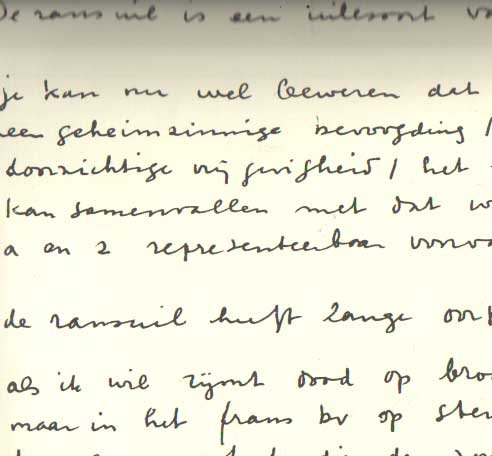 De ransuil is een uilesoort
je kan nu wel beweren dat
een geheimzinnige bevoogding /
doorzichtige vrijgevigheid / het
kan samenvallen met dat
a en z representeerbaar
de ransuil heeft lange
als ik wil rijmt dood op
maar in het frans bv op